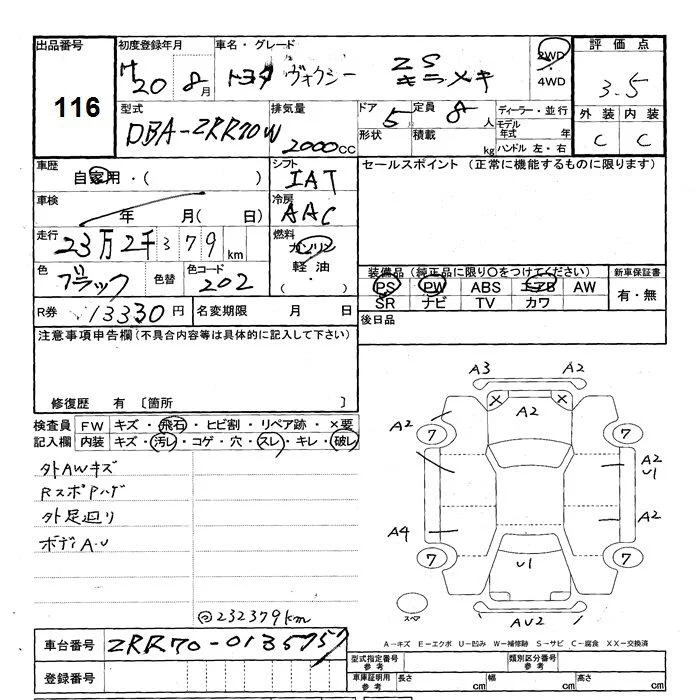 出品番号 116
初度登録年月 H20 8月
車名・グレード トヨタ ヴォクシー ZS キラメキ
2WD・4WD
評価点 3.5
外装 C 内装 C
型式 DBA-ZRR70W
排気量 2000cc
ドア 5 定員 8人
形状 積載 kg
ディーラー・並行
モデル年式 年
ハンドル 左・右
車歴 自家用・( )
シフト IAT
セールスポイント (正常に機能するものに限ります)
車検 年 月( 日)
冷房 AAC
走行 23万2千379km
燃料 ガソリン・軽油・( )
色 ブラック 色替 色コード 202
装備品 (純正品に限り〇をつけてください)
新車保証書 有・無
PS PW ABS エアB AW
SR ナビ TV カワ
R券 13330円 名変期限 月 日
後日品
注意事項申告欄(不具合内容等は具体的に記入して下さい)
修復歴 有 〔箇所 〕
検査員記入欄
FW キズ・飛石・ヒビ割・リペア跡・×要
内装 キズ・汚レ・コゲ・穴・スレ・キレ・破レ
外AWキズ
RスポPハゲ
外足廻り
ボディA.U
232379km
A3 A2
× A2 ×
A2 7 7
A2 U1
A4 A2
7 7
U1
スペア
AU2
A-キズ E-エクボ U-凹み W-補修跡 S-サビ C-腐食 XX-交換済
車台番号 ZRR70-0135757
登録番号
型式指定番号 参考 類別区分番号 参考
車庫証明用 参考 長さ cm 幅 cm 高さ cm